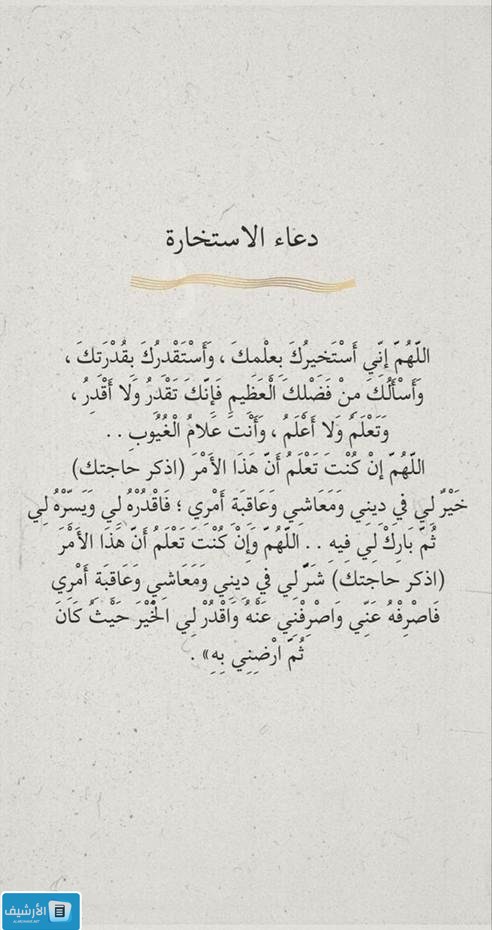 دعاء الاستخارة
اللَّهُمَّ إِنِّي أَسْتَخيرُكَ بعلْمكَ ، وَأَسْتَقْدرُكَ بقُدْرَتِكَ ،
وَأَسْأَلُكَ منْ فَضْلكَ الْعَظِيمِ فَإِنَّكَ تَقْدرُ وَلَا أَقْدِرُ ،
وَتَعْلَمُ وَلا أَعْلَمُ ، وَأَنْتَ عَلامُ الْغُيُوبِ . .
اللَّهُمَّ إنْ كُنْتَ تَعْلَمُ أَنَّ هَذَا الأَمْرَ (اذكر حاجتك)
خَيْرٌ لِي في ديني وَمَعَاشي وَعَاقبَة أَمْرِي ؛ فَاقْدُرْهُ لي وَيَسّرْهُ لي
ثُمَّ بَاركْ لي فيهِ . . اللَّهُمَّ وَإِنْ كُنْتَ تَعْلَمُ أَنَّ هَذَا الأَمْرَ
(اذكر حاجتك) شَرٌّ لي في دِيني وَمَعَاشي وَعَاقبَة أَمْرِي
فَاصْرِفْهُ عَنِّي وَاصْرِفْنِي عَنْهُ وَاقْدُرْ لِي الْخَيْرَ حَيْثُ كَانَ
ثُمَّ ارْضِنِي بِهِ» .
الأرشيف